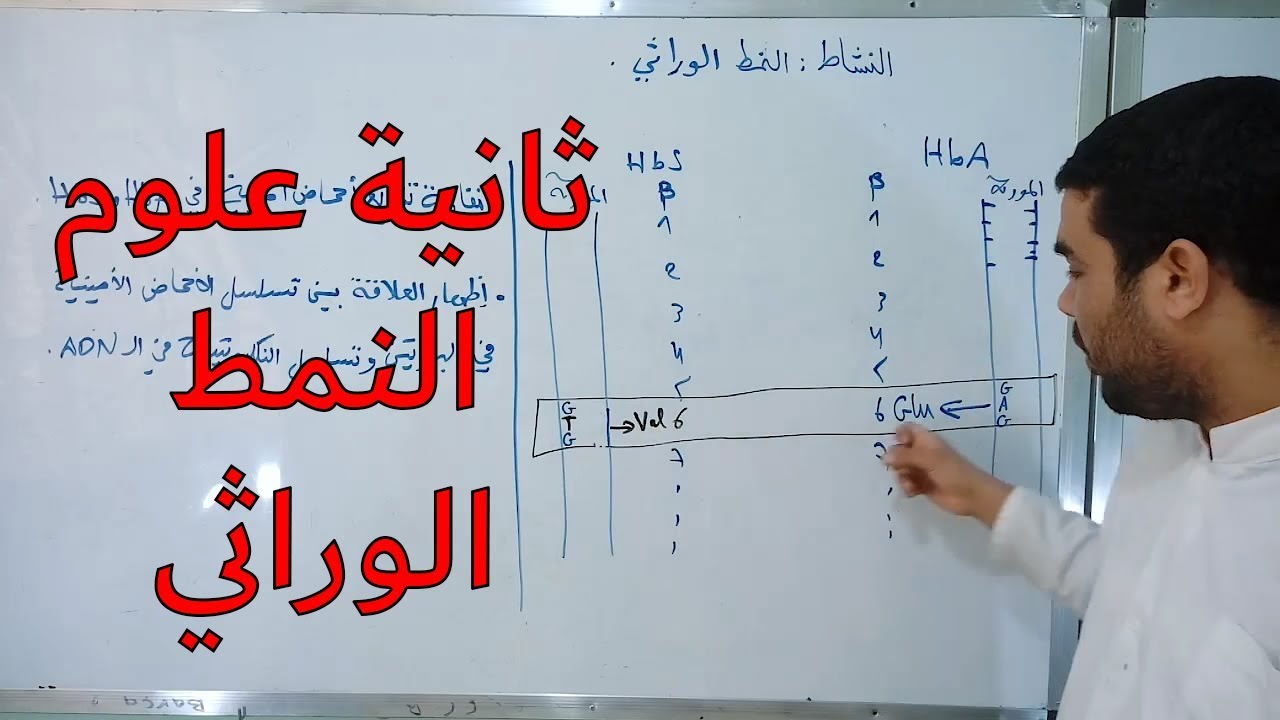 النشاط : النمط الوراثي .
ثانية علوم
النمط
الوراثي
HbA
المورثة
β
1
2
3
4
5
6 Glu ← G A G
7
HbS
β
1
2
3
4
5
G T G → Val 6
7
. إظهار العلاقة بين تسلسل الأحماض الأمينية
في ADN .
Barça